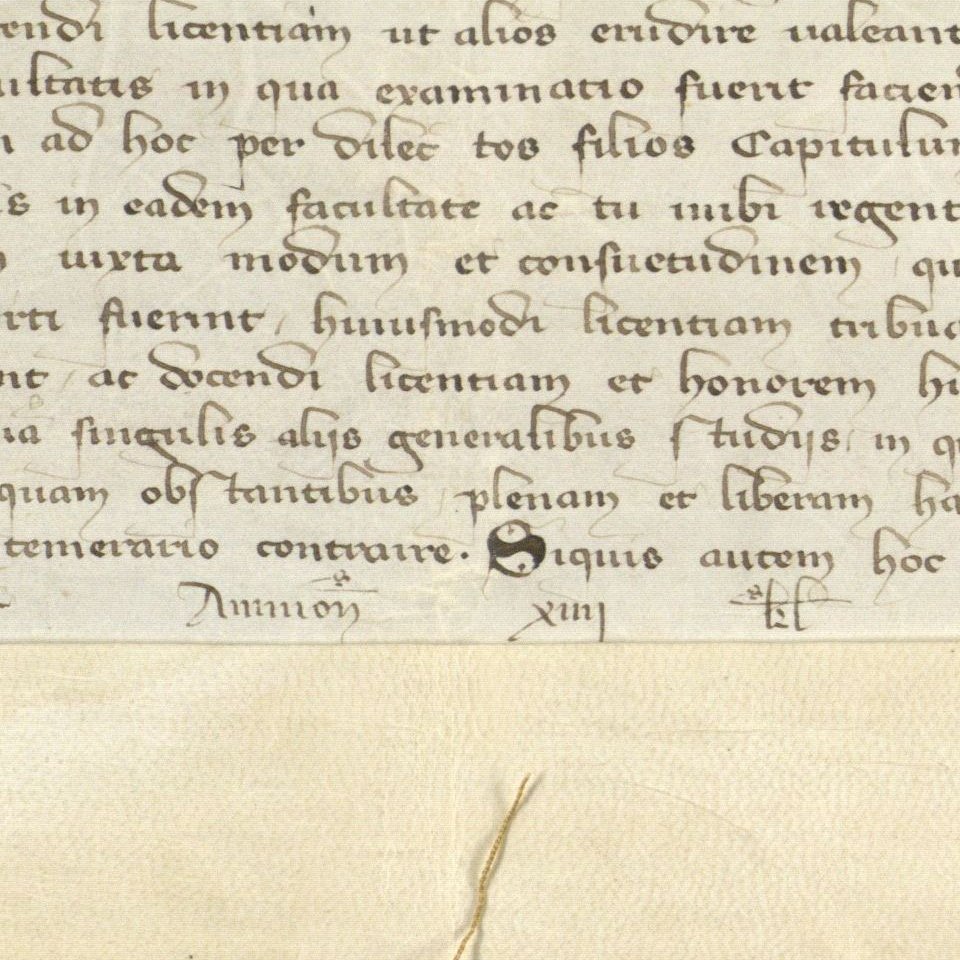 endi licentiam ut alios erudire ualeant
ultatis in qua examinatio fuerit facien
ad hoc per dilec tos filios Capitulum
is in eadem facultate ac tu inibi regent
iuxta modum et consuetudinem qu
rti fuerint, huiusmodi licentiam tribua
nt, ac docendi licentiam et honorem hu
singulis alijs generalibus studijs, in qu
quam obstantibus, plenam et liberam ha
temerario contraire. Siquis autem hoc
Auinion̄ xiiij kl